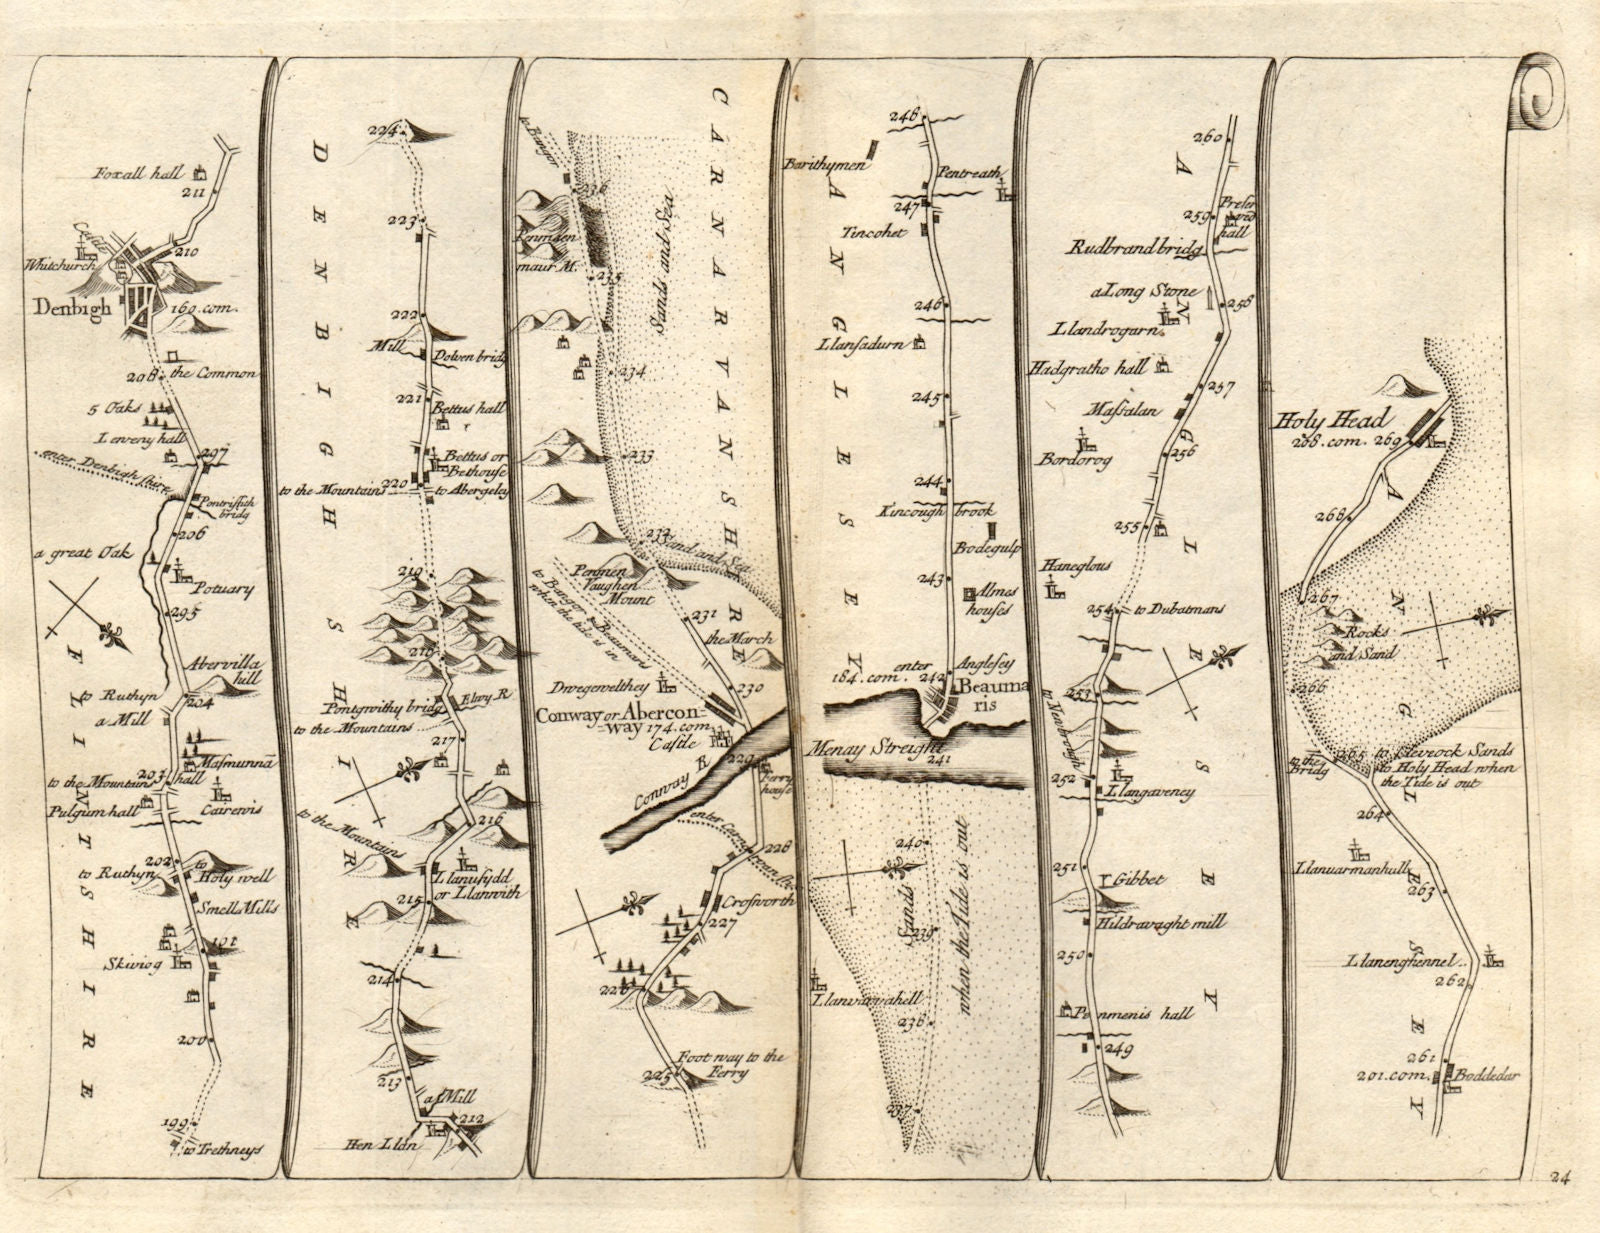 Foxall hall
211
Castle
210
Whitchurch
Denbigh
160.com.
208
the Common
5 Oaks
Leveny hall
207
enter Denbigh shire
Pontriffith
bridg
206
a great Oak
Potuary
295
Abervilla
hill
to Ruthyn
204
a Mill
Masmunnā
hall
203
to the Mountains
Pulgum hall
Cairewis
202
to
Holy well
to Ruthyn
Smell Mills
101
Skiviog
200
199
to Trethneys
FLINTSHIRE
224
223
222
Mill
Dolven bridg
221
Bettus hall
Bettus or
Bethouse
to the Mountains
220
to Abergeley
219
218
Pontgwithy bridg
Elwy R
to the Mountains
217
216
to the Mountains
Llanufydd
or Llanwith
215
214
213
a Mill
212
Hen Llan
DENBIGH SHIRE
to Bangor
236
Penmaen
maur M.
235
Sands and Sea
234
233
232
Sand and Sea
Penmen
Vaughen
Mount
to Bangor & Beaumaris
when the tide is in
231
the March
230
Dwegewelthey
Conway or Abercon-
-way 174.com.
Castle
229
Ferry
house
Conway R
enter Carnarvan shire
228
Crosworth
227
226
Foot way to the
Ferry
225
CARNARVANSHIRE
248
Barithymen
Pentreath
247
Tincohet
246
Llansadurn
245
244
Kincough brook
Bodegulp
243
Almes
houses
enter Anglesey
184.com.
242
Beauma
ris
Menay Streight
241
240
Sands
when the Tide is out
239
Llanvarvahell
236
237
ANGLESEY
260
259
Preserved
hall
Rudbrand bridg
a Long Stone
258
Llandrogarn
Hadgratho hall
257
Massalan
256
Bordorog
255
Haneglous
254
to Dubatmans
253
to Newbrough
252
Llangaveney
251
Gibbet
Hildravaght mill
250
Penmenis hall
249
ANGLESEY
Holy Head
208.com.
269
268
267
Rocks
and Sand
266
265
to Clevrock Sands
to the
Bridg
to Holy Head when
the Tide is out
264
Llanvarmanhull
263
Llanenghennel
262
261
201.com.
Boddedar
ANGLESEY
24